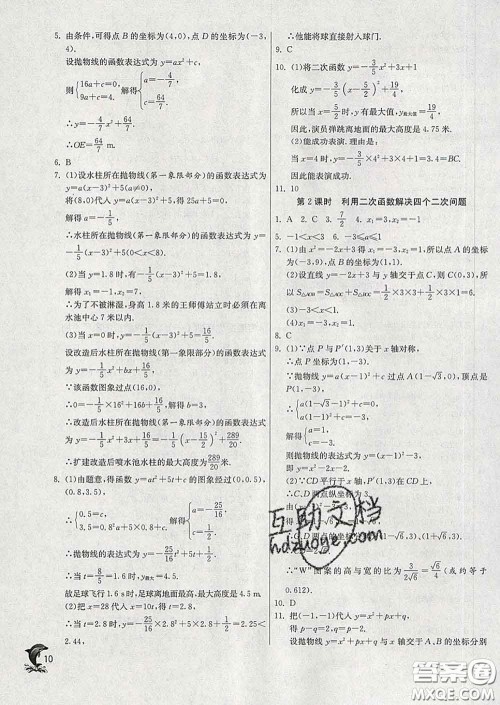 5. 由条件,可得点 B 的坐标为(4,0),点 D 的坐标为(-3,
4).
设抛物线的函数表达式为 y=ax²+c,
则 {16a+c=0, 9a+c=4. 解得 {a=-4/7, c=64/7.
∴y=-4/7x²+64/7,∴OE=64/7 m.
6. B
7. (1)设水柱所在抛物线(第一象限部分)的函数表达式为
y=a(x-3)²+5(a≠0),
将(8,0)代入 y=a(x-3)²+5,得 25a+5=0,
解得 a=-1/5.
∴水柱所在抛物线(第一象限部分)的函数表达式为
y=-1/5(x-3)²+5(0<x<8).
(2)当 y=1.8 时,有-1/5(x-3)²+5=1.8,
解得 x₁=-1,x₂=7,
∴为了不被淋湿,身高 1.8 米的王师傅站立时必须在离
水池中心 7 米以内.
(3)当 x=0 时,y=-1/5(x-3)²+5=16/5.
设改造后水柱所在抛物线(第一象限部分)的函数表达式
为 y=-1/5x²+bx+16/5,
∵该函数图象过点(16,0),
∴0=-1/5×16²+16b+16/5,解得 b=3,
∴改造后水柱所在抛物线(第一象限部分)的函数表达式
为 y=-1/5x²+3x+16/5=-1/5(x-15/2)²+289/20.
∴扩建改造后喷水池水柱的最大高度为 289/20 米.
8. (1)由题意,得函数 y=at²+5t+c 的图象经过(0,0.5)、
(0.8,3.5),
∴{0.5=c, 3.5=0.8²a+5×0.8+c. 解得 {a=-25/16, c=1/2.
∴抛物线的表达式为 y=-25/16t²+5t+1/2,
∴当 t=8/5=1.6 时,y最大=4.5.
故足球飞行 1.6 s 时,足球离地面最高,最大高度是 4.5 m.
(2)把 x=28 代入 x=10t,得 t=2.8,
∴当 t=2.8 时,y=-25/16×2.8²+5×2.8+1/2=2.25<
2.44,
∴他能将球直接射入球门.
9. C
10. (1)将二次函数 y=-3/5x²+3x+1
化成 y=-3/5(x-5/2)²+19/4,
所以当 x=5/2 时,y 有最大值,y最大值=19/4,
因此,演员弹跳离地面的最大高度是 4.75 米.
(2)能成功表演.理由是:
当 x=4 时,y=-3/5×4²+3×4+1=3.4.
因此,能表演成功.
11. 10
第 2 课时 利用二次函数解决四个二次问题
1. A 2. C 3. 7/2 4. x₁=3,x₂=-1
5. -1<x<3 6. -3≤a≤1
7. (1)由 x²=-2x+3,得 x₁=-3,x₂=1,所以点 A 的坐标为
(-3,9),点 B 的坐标为(1,1).
(2)设直线 y=-2x+3 与 y 轴交于点 C,则 C(0,3),所
以 S△AOB=S△AOC+S△BOC=1/2×3×3+1/2×3×1=6.
(3)-3<x<1.
(4)x₁=-3,x₂=1.
8. C
9. (1)∵点 P 与 P′(1,3)关于 x 轴对称,
∴点 P 坐标为(1,-3).
∵抛物线 y=a(x-1)²+c 过点 A(1-√3,0),顶点是
P(1,-3),
∴{a(1-√3-1)²+c=0, a(1-1)²+c=-3.
解得 {a=1, c=-3.
则抛物线的表达式为 y=(x-1)²-3,
即 y=x²-2x-2.
(2)∵CD 平行于 x 轴,P′(1,3)在 CD 上,
∴C、D 两点纵坐标为 3.
∴"W"图案的高与宽的比为 3/(2√6)=√6/4(或约等于
0.612).
10. D
11. 把(-1,-1)代入 y=x²+px+q,
得 p-q=2,即 q=p-2,
设抛物线 y=x²+px+q 与 x 轴交于 A、B,坐标分别
10
互助文档
hdzuoye.com
答案圈
MXQE.COM